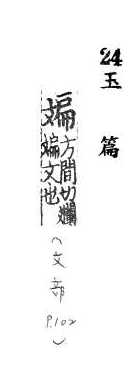 24 玉篇
斒
方間切斕
斒文也
(文部 P.102)